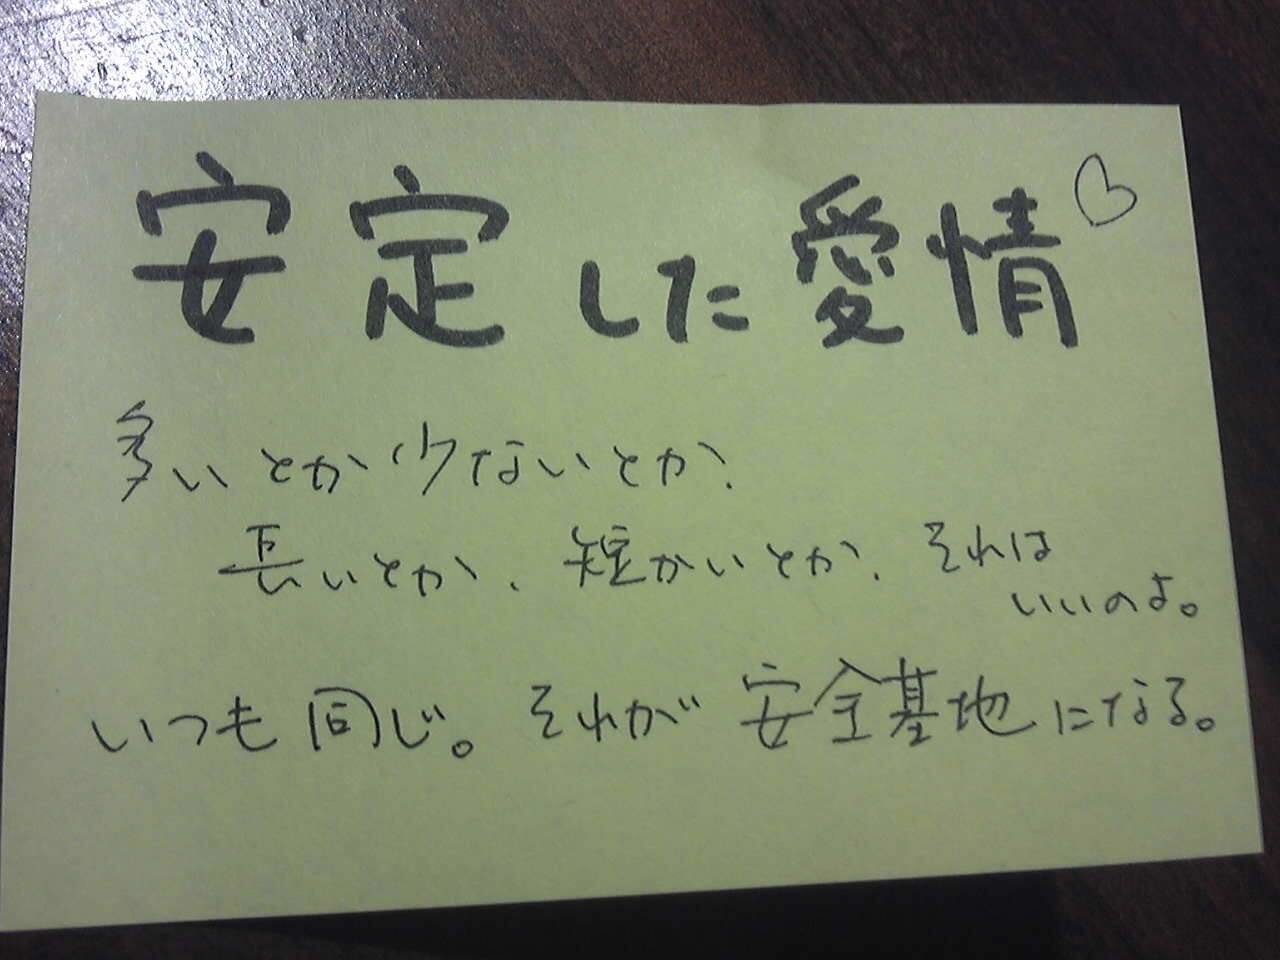 安定した愛情♡
多いとか少ないとか、
長いとか、短かいとか、それは
いいのよ。
いつも同じ。それが安全基地になる。